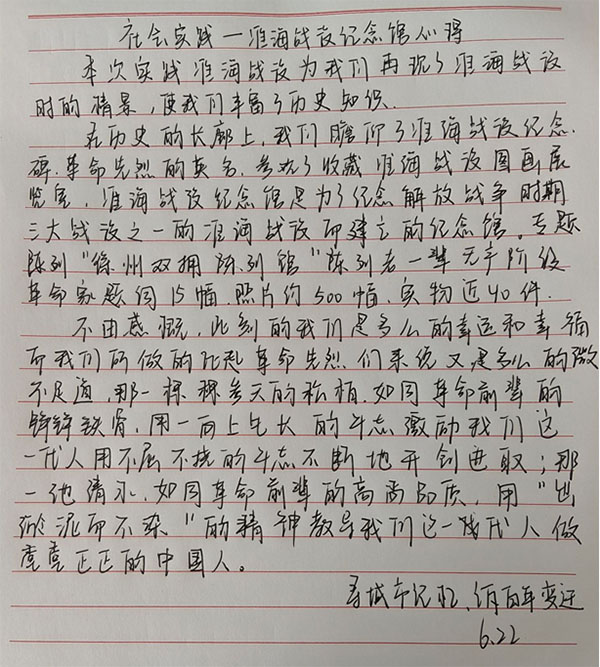 社会实践—淮海战役纪念馆心得
本次实践淮海战役为我们再现了淮海战役
时的情景，使我们丰富了历史知识.
在历史的长廊上，我们瞻仰了淮海战役纪念
碑.革命先烈的英名，参观了收藏淮海战役图画展
览室，淮海战役纪念馆是为了纪念解放战争时期
三大战役之一的淮海战役而建立的纪念馆。专题
陈列"徐州双拥陈列馆"陈列老一辈无产阶级
革命家题词15幅，照片约500幅，实物近40件.
不由感慨，此刻的我们是多么的幸运和幸福
而我们所做的比起革命先烈们来说又是多么的微
不足道，那一棵棵参天的松柏，如同革命前辈的
铮铮铁骨，用一向上生长的斗志激励我们这
一代人用不屈不挠的斗志不断地开创进取；那
一池清水，如同革命前辈的高尚品质，用"出
淤泥而不染"的精神教导我们这一代人做
堂堂正正的中国人。
寻城市记忆、百年变迁
6.22